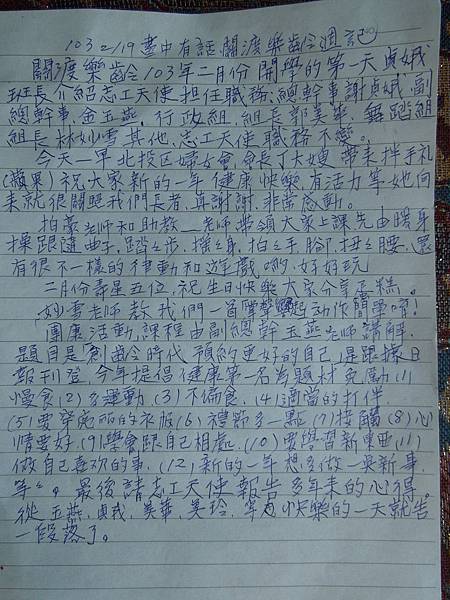 103 2/19 畫中有話關渡樂齡令週記
關渡樂齡103年二月份開學的第一天貞娥
班長介紹志工天使担任職務.總幹事謝貞娥.副
總幹事.金玉燕.行政組.組長郭美華.舞蹈組
組長林妙雪其他.志工天使職務不變。
今天一早北投区婦女會.會長丁大嫂帶来拌手礼
(蘋果)祝大家新的一年健康快樂.有活力等她向
来就很関照我們長者.再謝謝.非常感動。
柏蒙老師和助教__老師帶領大家上課先由暖身
操跟隨曲子.踏々步.擺々身.拍々手腳.扭々腰.還
有很不一樣的律動和遊戲喲.好好玩
二月份壽星五位.祝生日快樂大家分享蛋糕。
妙雪老師教我們一首動作簡單唷!
團康活動.課程由副總幹玉燕老師講解.
題目是創齡令時代預約更好的自己.是跟據日
報刊登.今年提倡健康第一名為題材免勵(1)
慢食(2)多運動(3)不偏食.(4)適當的打伴
(5)要穿亮丽的衣服(6)禮節多一點(7)接觸(8)心
情要好(9)學會跟自己相處.(10)要學習新東西(11)
做自己喜欢的事.(12)新的一年想多做一点新事.
等々。最後請志工天使報告多年来的心得。
從玉燕.貞娥.美華.美玲.等快樂的一天就告
一段落了。